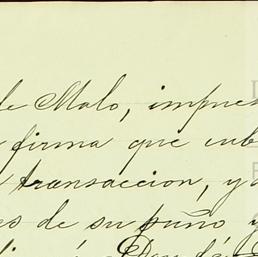 de Malo, impres
firma que cub
transaccion, y
es de su puño y